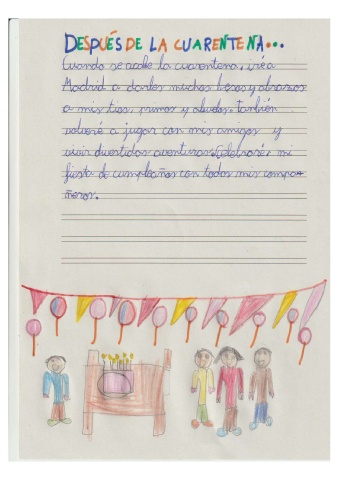 DESPUÉS DE LA CUARENTENA...
Cuando se acabe la cuarentena, iré a
Madrid a darles muchos besos y abrazos
a mis tios, primos y abuelos. También
volveré a jugar con mis amigos y
vivir divertidas aventuras. Celebraré mi
fiesta de cumpleaños con todos mis compa-
ñeros.